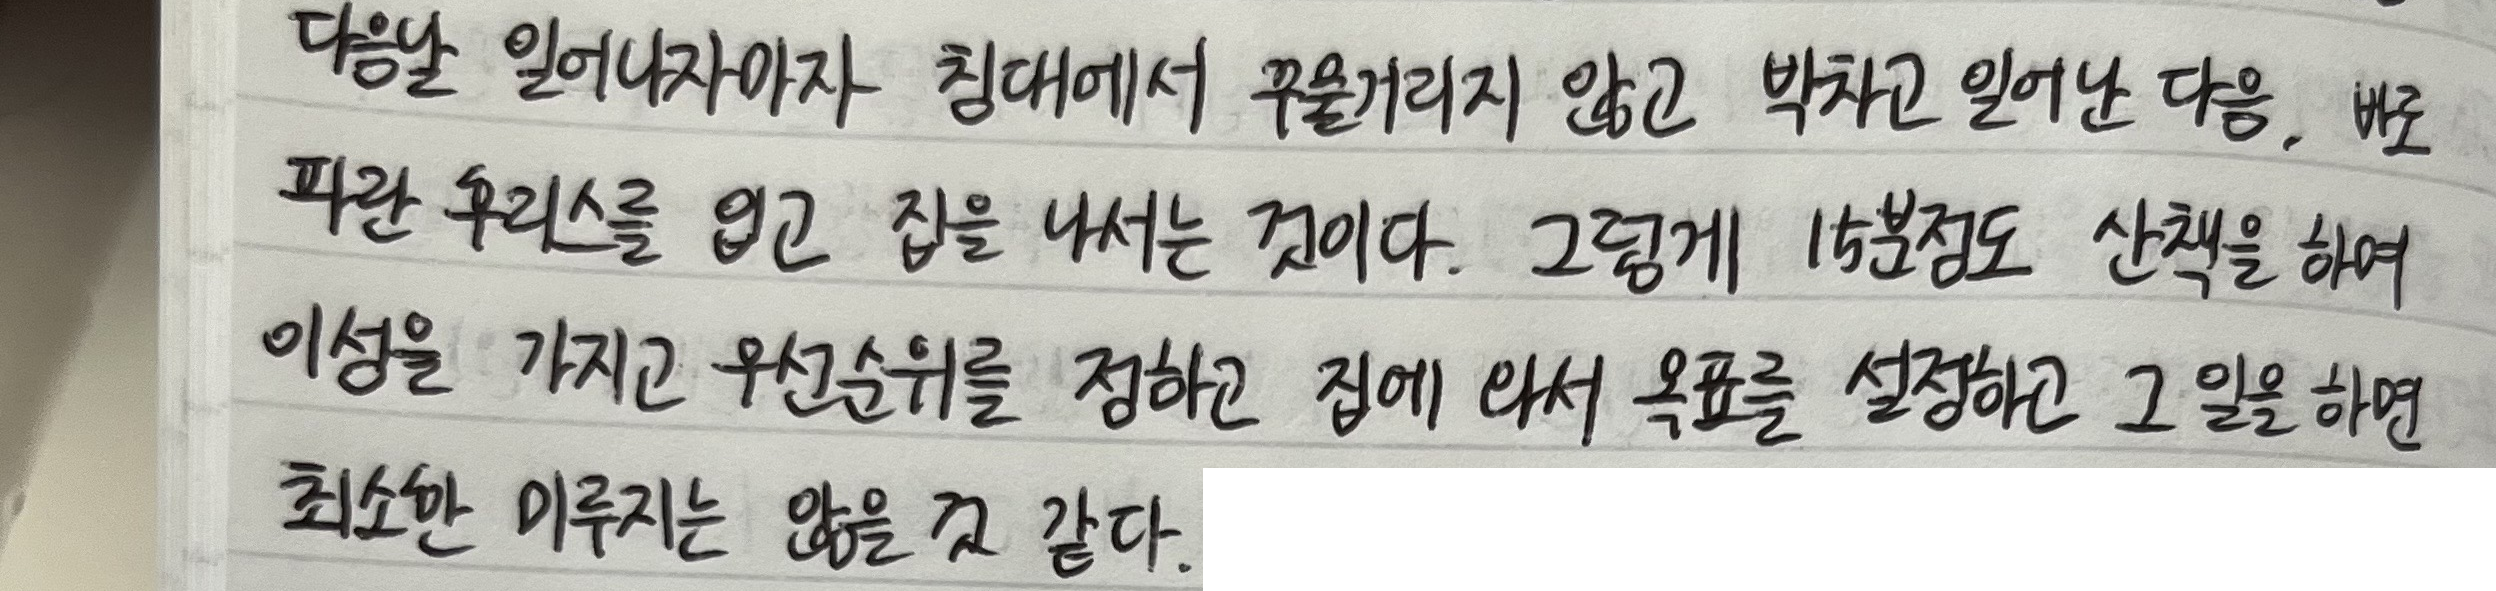 다음날 일어나자마자 침대에서 꾸물거리지 않고 박차고 일어난 다음, 바로
파란 후리스를 입고 집을 나서는 것이다. 그렇게 15분정도 산책을 하여
이성을 가지고 우선순위를 정하고 집에 와서 목표를 설정하고 그 일을 하면
최소한 미루지는 않을 것 같다.